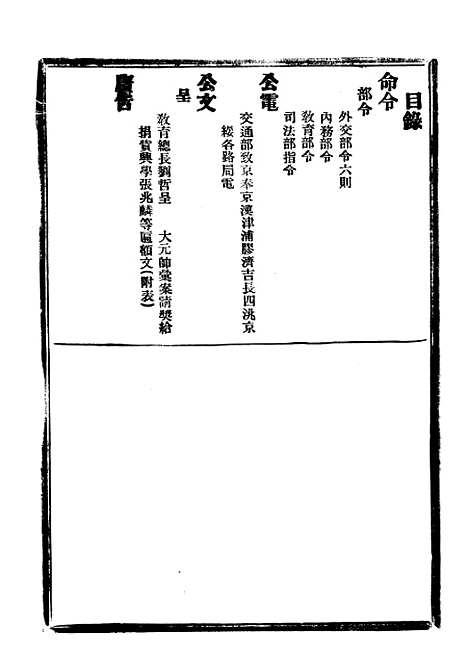 目錄
命令
部令
外交部令六則
內務部令
敎育部令
司法部指令
公電
交通部致京奉京漢津浦膠濟吉長四洮京
綏各路局電
公文
呈
敎育總長劉哲呈 大元帥彙案請奬給
捐貲興學張兆麟等匾額文(附表)
廣吿